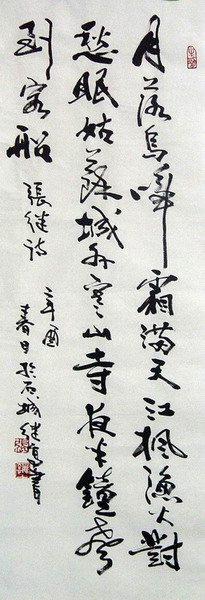 月落烏啼霜滿天江楓漁火對
愁眠姑蘇城外寒山寺夜半鐘聲
到客船
張继诗
辛酉
春日於石城继